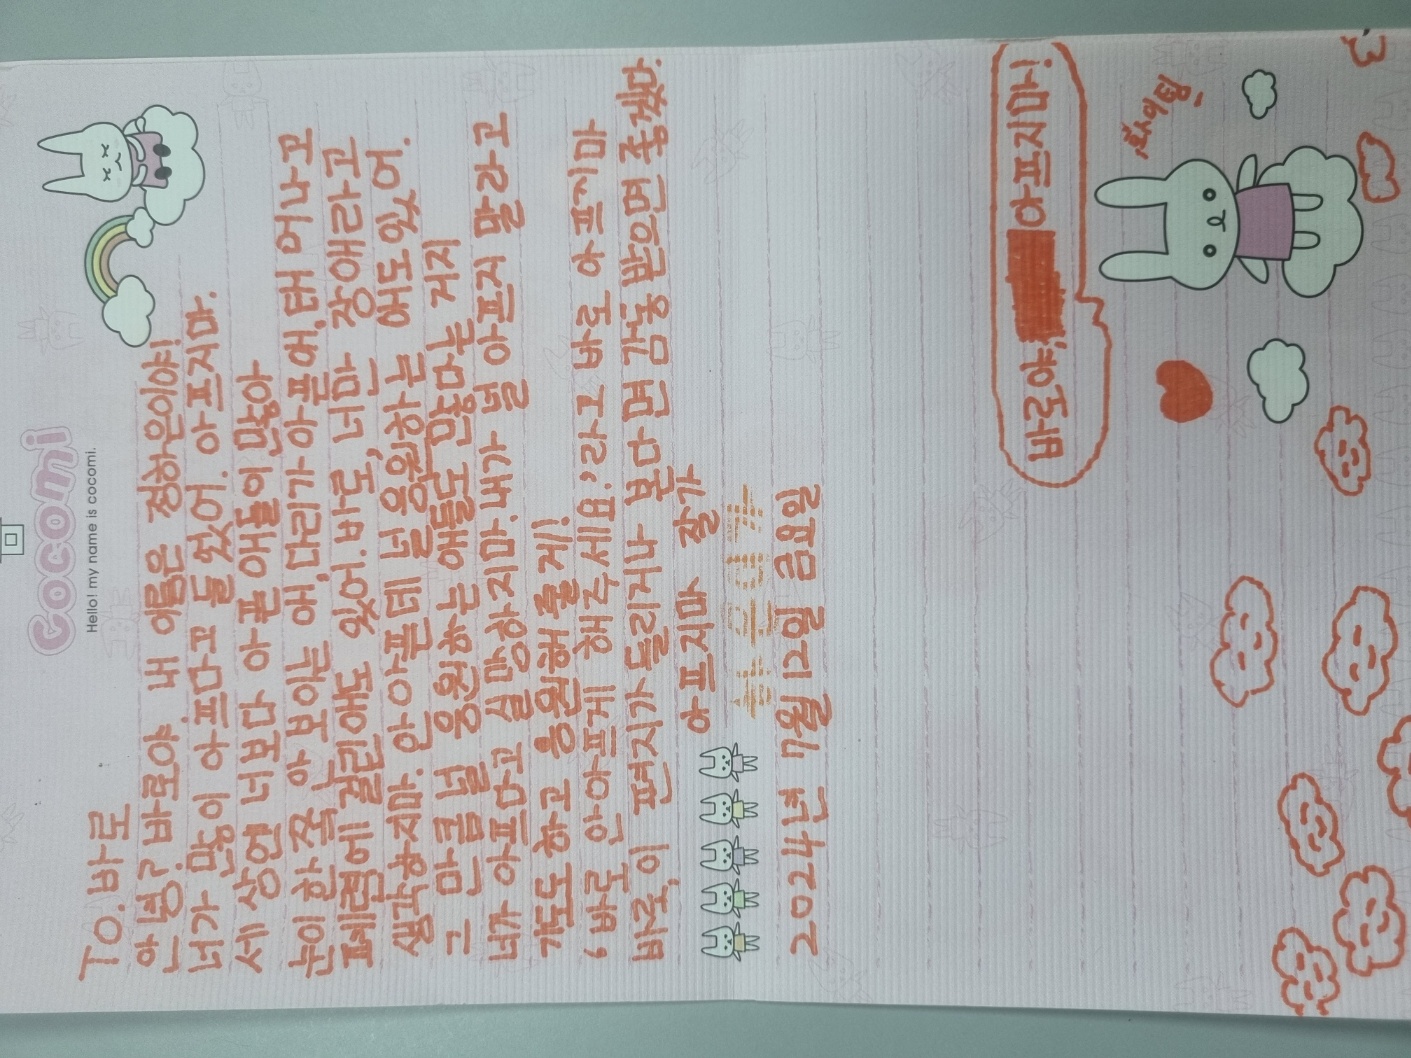 cocomi
Hello! my name is cocomi.
To. 바로
안녕? 바로야. 내 이름은 정하은이야!
너가 많이 아프다고 들었어. 아프지마.
세상엔 너보다 아픈 애들이 많아
눈이 한쪽 안 보이는 애, 다리가 아픈애, 태어나고
폐렴에 걸린애도 있어. 바로, 너만 장애라고
생각하지마. 안아픈데 널 응원하는 애도 있어.
그 만큼 널 응원하는 애들도 많다는 거지
너가 아프다고 실망하지마. 내가 널 아프지 말라고
기도도 하고 응원해 줄게!
'바로 안아프게 해주세요.'라고 바로 아프지마
바로, 이 편지가 들리거나 본다면 감동 받으면 좋겠다.
아프지마 잘가
하은이가
2024년 7월 12일 금요일
바로야, 아프지마!
화이팅!